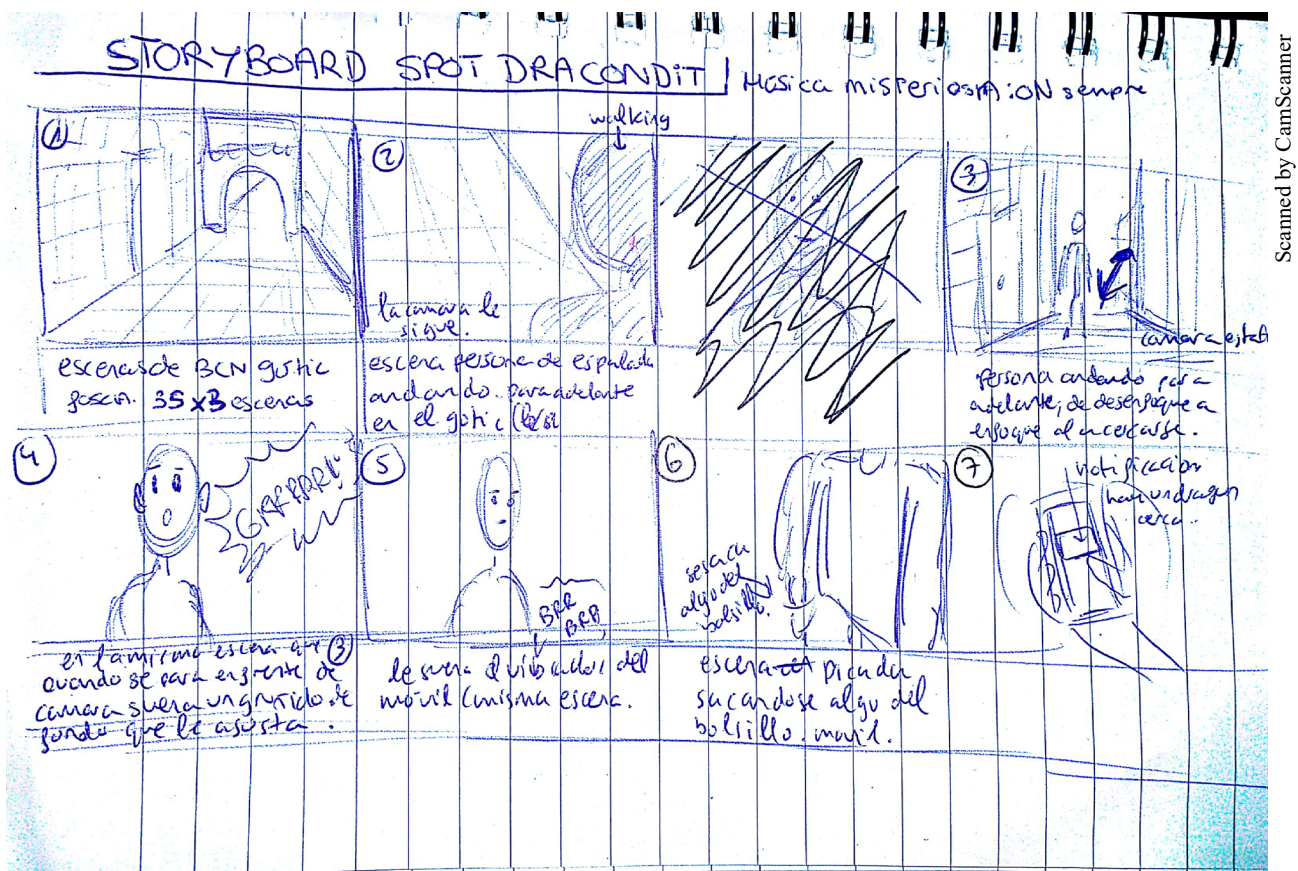 STORYBOARD SPOT DRACONDIT
Musica misteriosA: ON sempre
1
escenas de BCN gotic
foscia. 3S x3 escenas
2
walking
la camara le
sigue.
escena persona de espalada
andando para adelante
en el gotic
3
camara estati
Persona andando para
adelante, de desenfoque a
enfoque al acercarse.
4
GRRRRR!
en la misma escena que 3
cuando se para enfrente de
camara suena un gruñido de
fondo que le asusta.
5
BRR
BRR
le suena el vibrador del
móvil (misma escena.
6
se saca
algo del
bolsillo.
escena picada
sacandose algo del
bolsillo. movil.
7
notificacion
hay un dragon
cerca.
Scanned by CamScanner